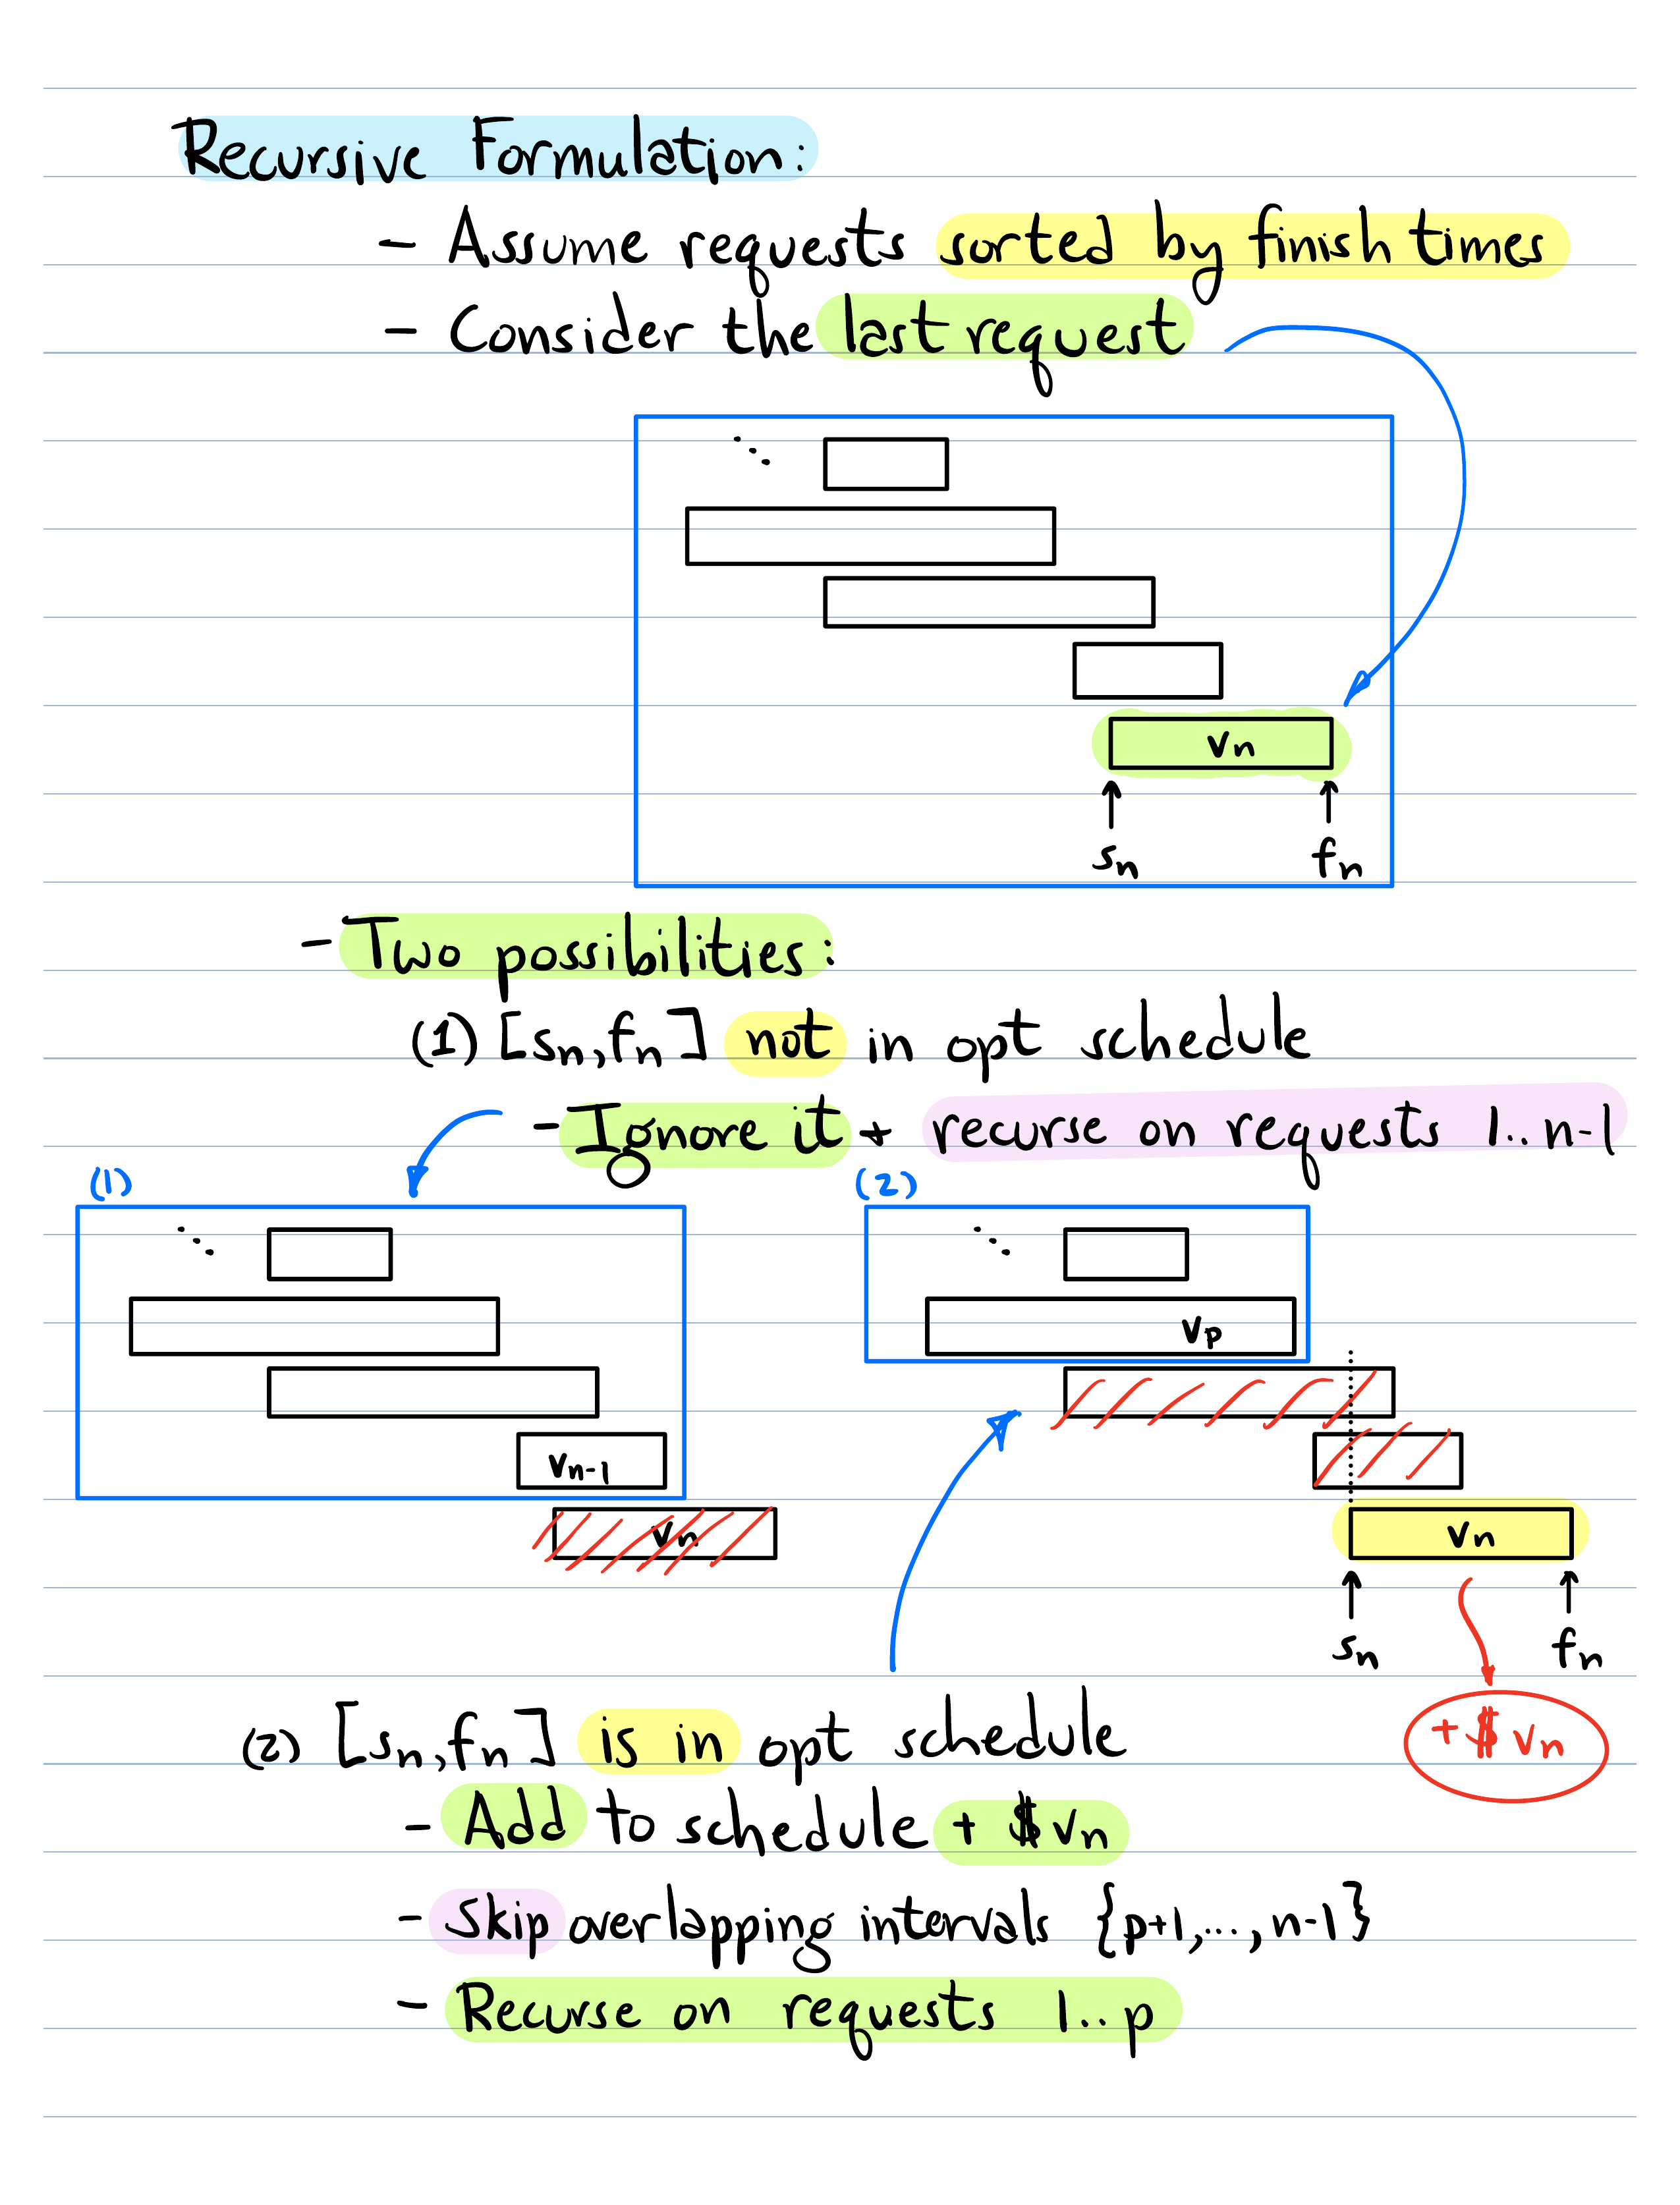 Recursive Formulation:
- Assume requests sorted by finish times
- Consider the last request
vn
sn fn
- Two possibilities:
(1) [sn,fn] not in opt schedule
- Ignore it + recurse on requests 1..n-1
(1) (2)
vp
vn-1
vn vn
sn fn
+ $ vn
(2) [sn,fn] is in opt schedule
- Add to schedule + $vn
- Skip overlapping intervals {p+1,...,n-1}
- Recurse on requests 1..p